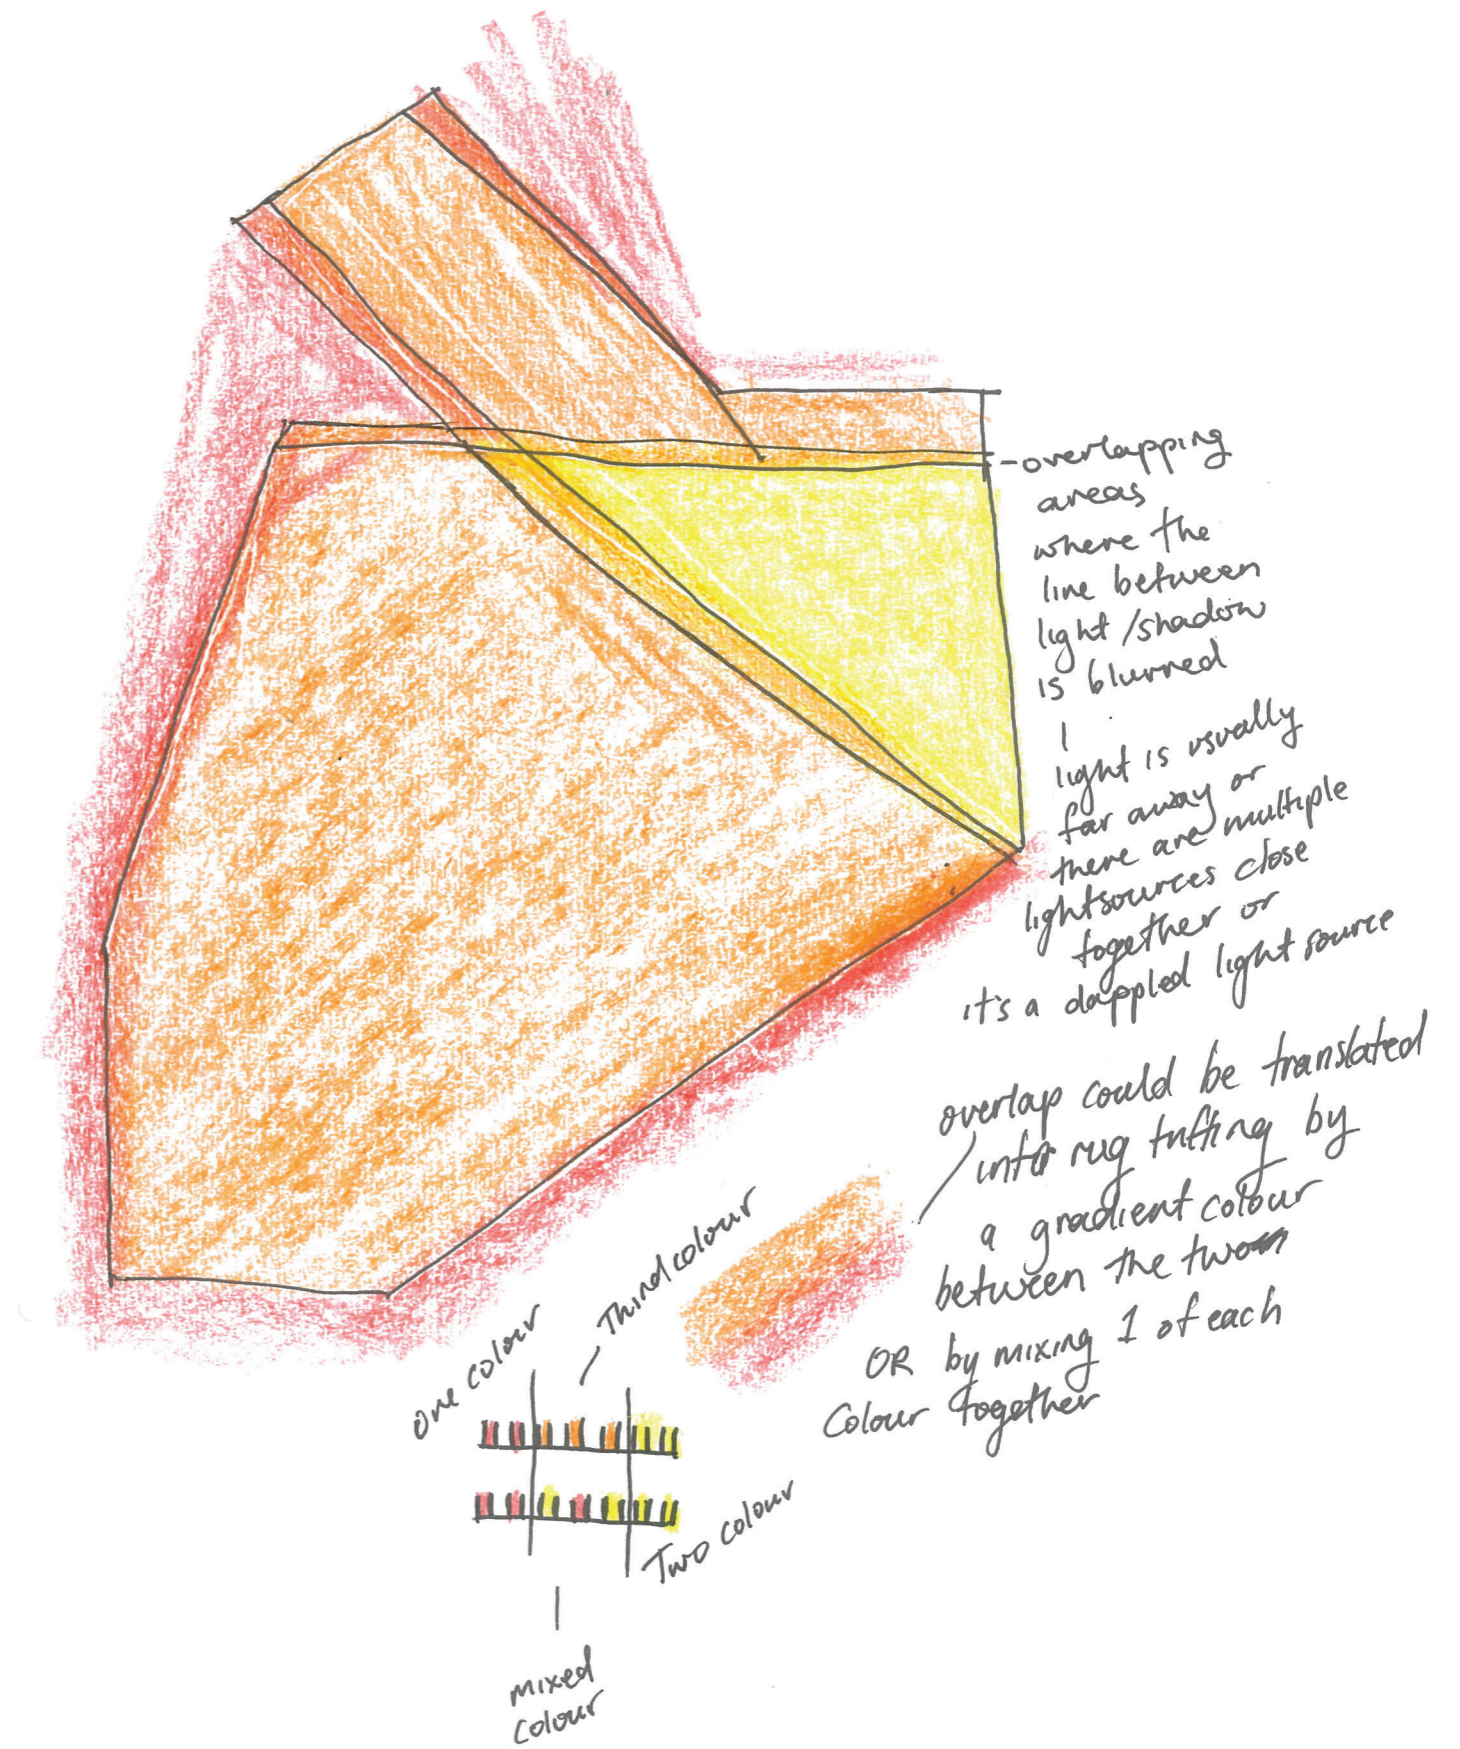 -overlapping
areas
where the
line between
light/shadow
is blurred
light is usually
far away or
there are multiple
lightsources close
together or
it's a dappled light source
overlap could be translated
into rug tufting by
a gradient colour
between the two
OR by mixing 1 of each
colour together
one colour
Third colour
Two colour
mixed
colour